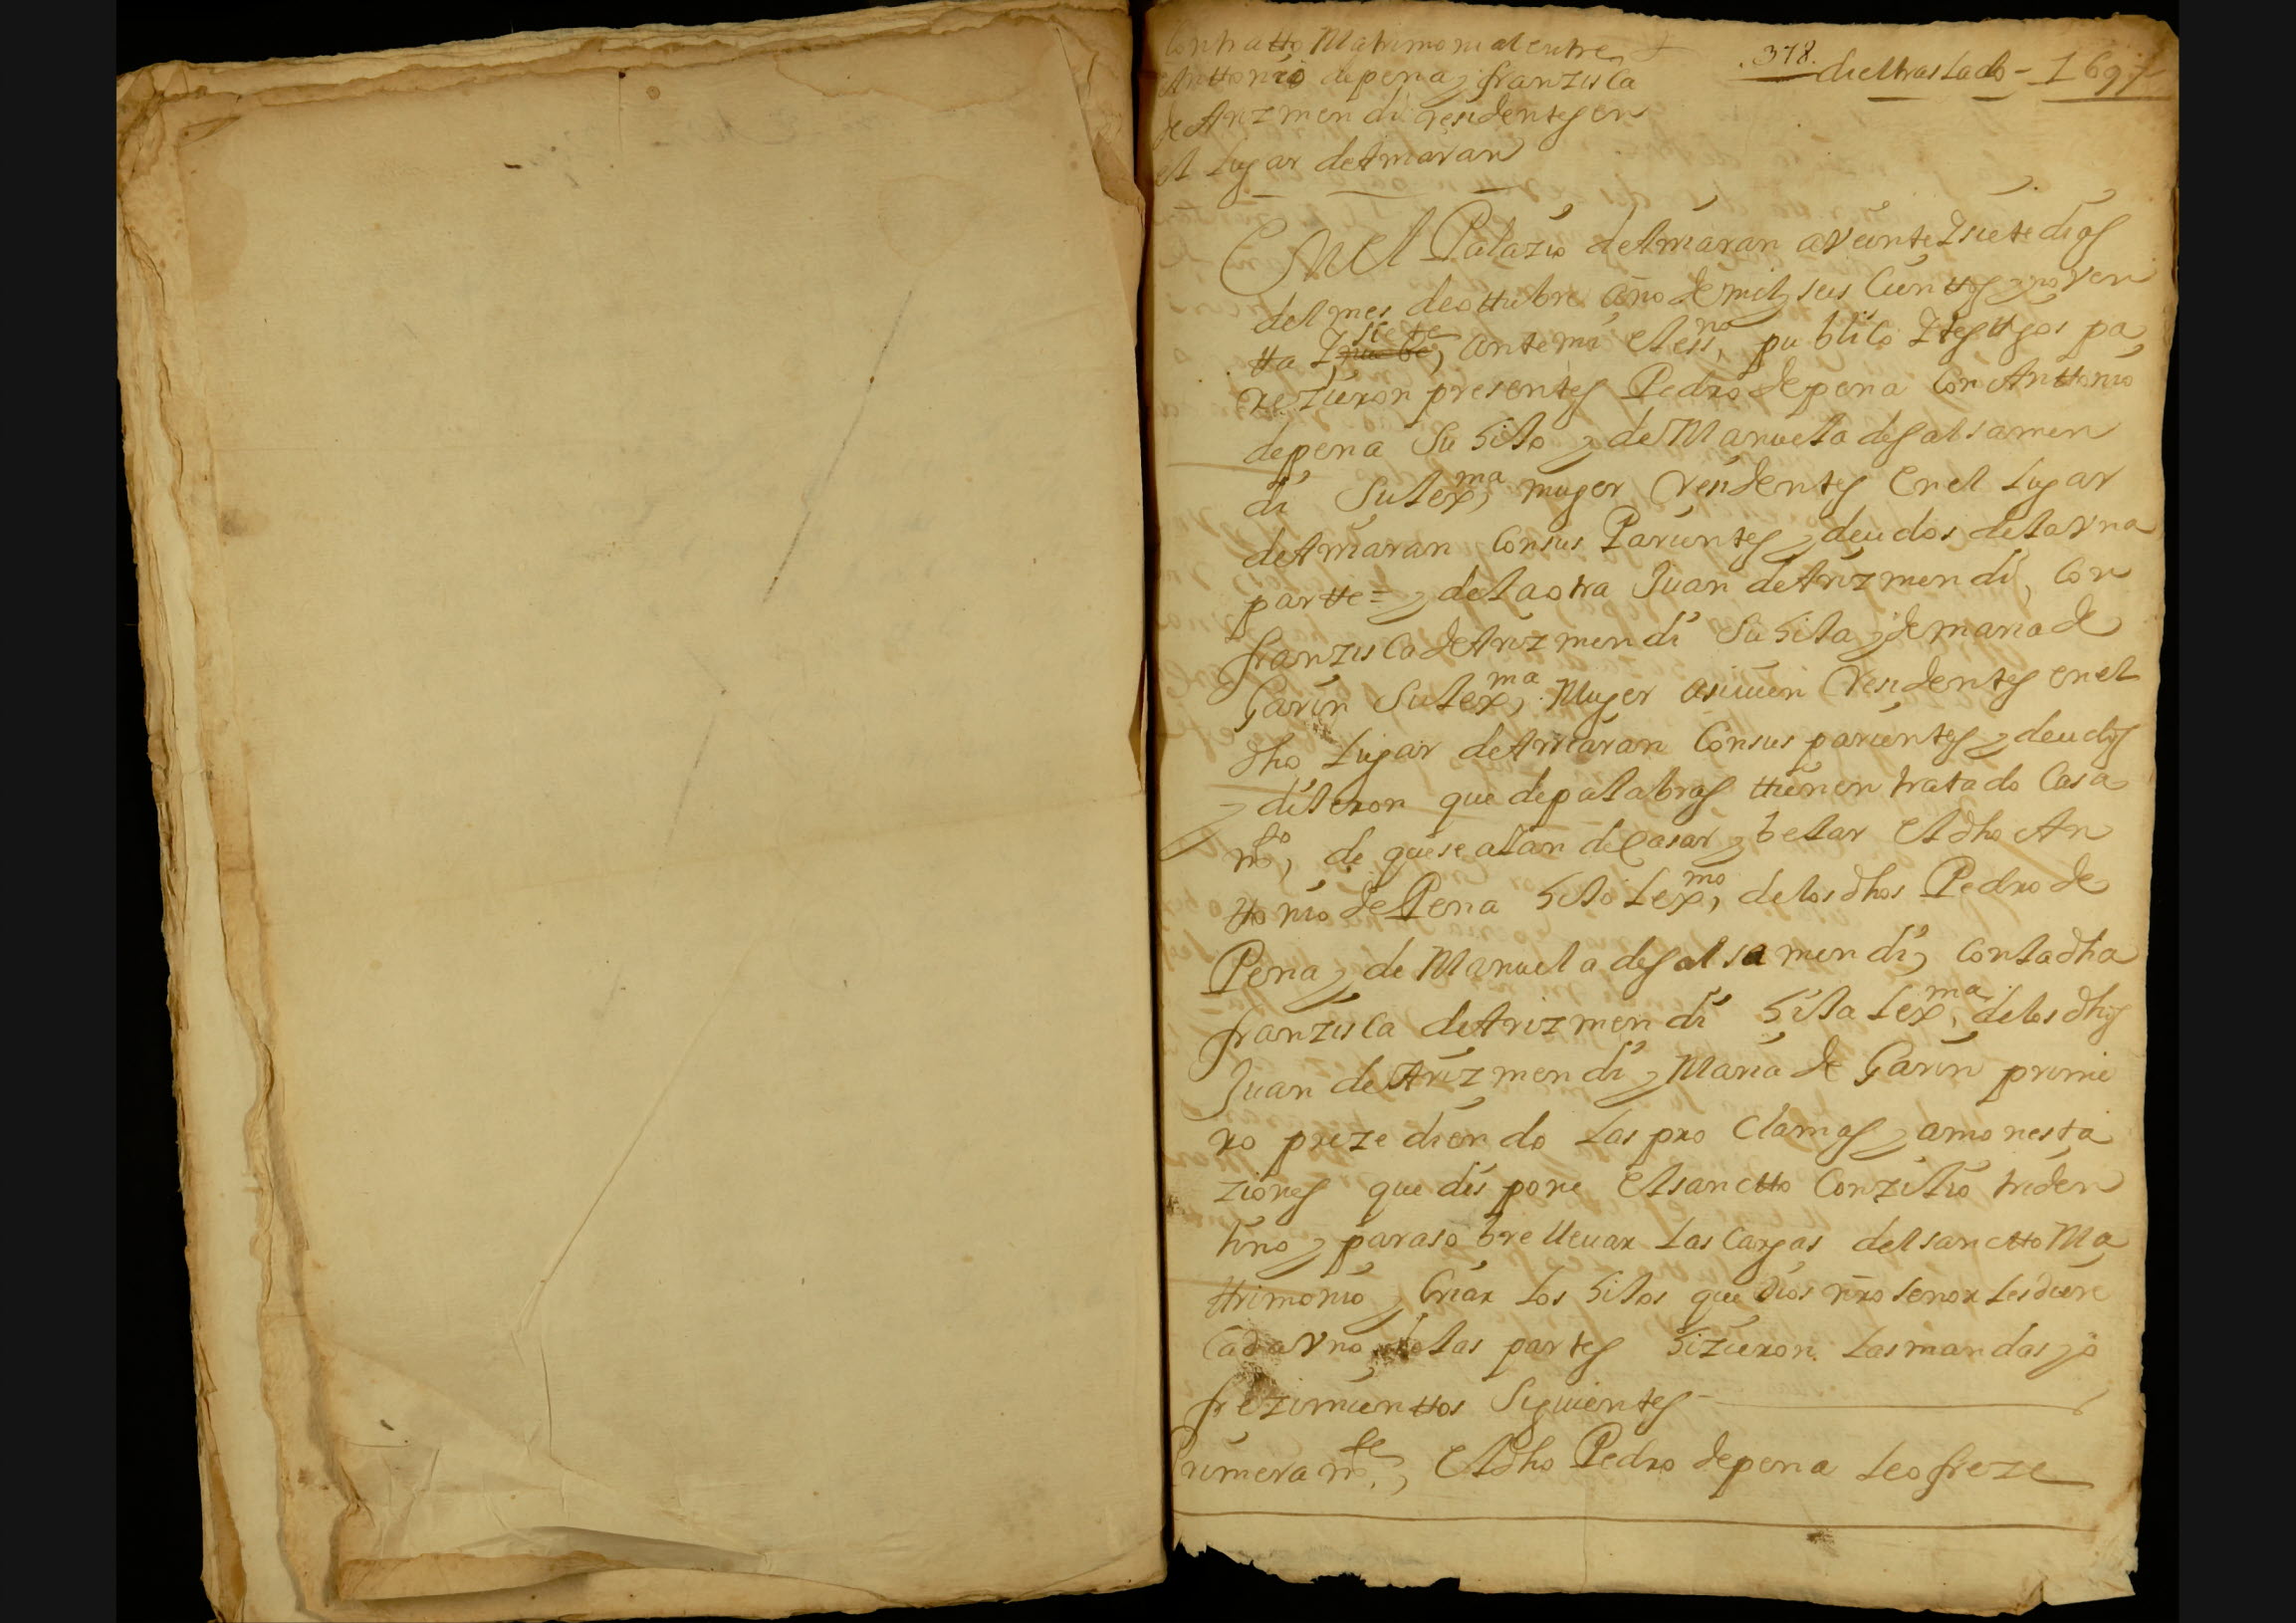 Contratto Matrimonial entre
Anttonio de pena y franzisca
de Arizmendi residentes en
el lugar de Amaran
.378.
di el traslado - 1697
En el Palazio de Amaran a Veinte Isiete dias
del mes de ottubre año de mil y seis Cienttos y noven
tta I nuebe siete, ante mi el essno, publico I testigos pa
rezieron presentes Pedro de pena Con Anttonio
de pena Su hijo y de Manuela de galsamen
di Su lexma, muger residentes en el lugar
de Amaran Con sus Parientes y deudos de la Vna
partte = y de la otra Juan de Arizmendi, Con
franzisca de Arizmendi Su hija y de maria de
Garin Su lexma, Muger asimien residentes en el
dho lugar de Amaran Con sus parientes y deudos
y dijeron que de palabras ttienen tratado Casa
mto, de que se ajan de Casar y belar el dho An
ttonio de Pena hijo lexmo, de los dhos Pedro de
Pena y de Manuela de galsamendi, con la dha
franzisca de Arizmendi hija lexma, de los dhos
Juan de Arizmendi y Maria de Garin prime
ro prezediendo las pro Clamas y amonesta
ziones que dispone el sanctto Conzilio triden
tino y para sobre lleuar las Cargas del sanctto Ma
ttrimonio y Criar los hijos que Dios nro señor les diere
Cada Vno de las partes hizieron las mandas y o
frezimienttos Siguientes
Primeramte, el dho Pedro de pena le ofreze